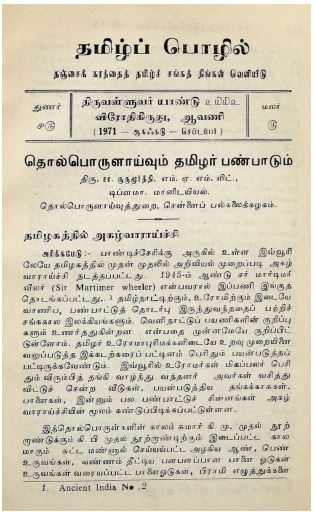 தமிழ்ப் பொழில்
தஞ்சைக் கரந்தைத் தமிழ்ச் சங்கத் திங்கள் வெளியீடு
துணர்
திருவள்ளுவர் யாண்டு ௨௦௦௨
விரோதிகிருது, ஆவணி
(1971 – ஆகஃசுடு – செப்டம்பர்)
மலர்
௫
தொல்பொருளாய்வும் தமிழர் பண்பாடும்
திரு. சா. குருமூர்த்தி, எம். ஏ. எம். லிட்.,
டிப்ளமா. மானிடயியல்.
தொல்பொருளாய்வுத்துறை, சென்னைப் பல்கலைக்கழகம்.
தமிழகத்தில் அகழ்வாராய்ச்சி
அரிக்கமேடு :- பாண்டிச்சேரிக்கு அருகில் உள்ள இவ்வூரி
லேயே தமிழகத்தில் முதன் முதலில் அறிவியல் முறைப்படி அகழ்
வாராய்ச்சி நடத்தப்பட்டது. 1945-ம் ஆண்டு சர் மார்டிமர்
வீலர் (Sir Martimer wheeler) என்பவரால் இப்பணி இங்குத்
தொடங்கப்பட்டது. 1 தமிழ்நாட்டிற்கும், உரோமிற்கும் இடையே
வாணிப, பண்பாட்டுத் தொடர்பு இருந்துவந்ததைப் பற்றிச்
சங்ககால இலக்கியங்களும். வெளிநாட்டுப் பயணிகளின் குறிப்பு
களும் உணர்த்துகின்றன என்பதை முன்னமேயே குறிப்பிட்
டுள்ளோம். தமிழர் உரோமாபுரிமக்களிடையே உறவு முறையினை
வலுப்படுத்த இக்கடற்கரைப் பட்டினம் பெரிதும் பயன்படுத்தப்
பட்டிருக்கவேண்டும். இவ்வூரில் உரோமர்கள் மிகப்பலர் பெரி
தும் விரும்பித் தங்கி வாழ்ந்து வந்தனர் அவர்கள் வசித்து
விட்டுச் சென்ற வீடுகள், பயன்படுத்திய தங்கக்காசுகள்,
பானைகள், இன்னும் பல பண்பாட்டுச் சின்னங்கள் அகழ்
வாராய்ச்சியின் மூலம் கண்டுப்பிடிக்கப்பட்டுள்ளன.
இத்தொல்பொருள்களின் காலம் சுமார் கி. மு. முதல் நூற்
றாண்டுக்கும் கி. பி முதல் நூற்றாண்டிற்கும் இடைப்பட்ட கால
மாகும். சுட்ட மண்ணால் செய்யப்பட்ட அழகிய ஆண், பெண்
உருவங்கள், வண்ணம் தீட்டிய பளபளப்பான பானை ஓடுகள்
உருவங்கள் வரையப்பட்ட பானைஓடுகள், பிராமி எழுத்துக்களை
1. Ancient India No. 2